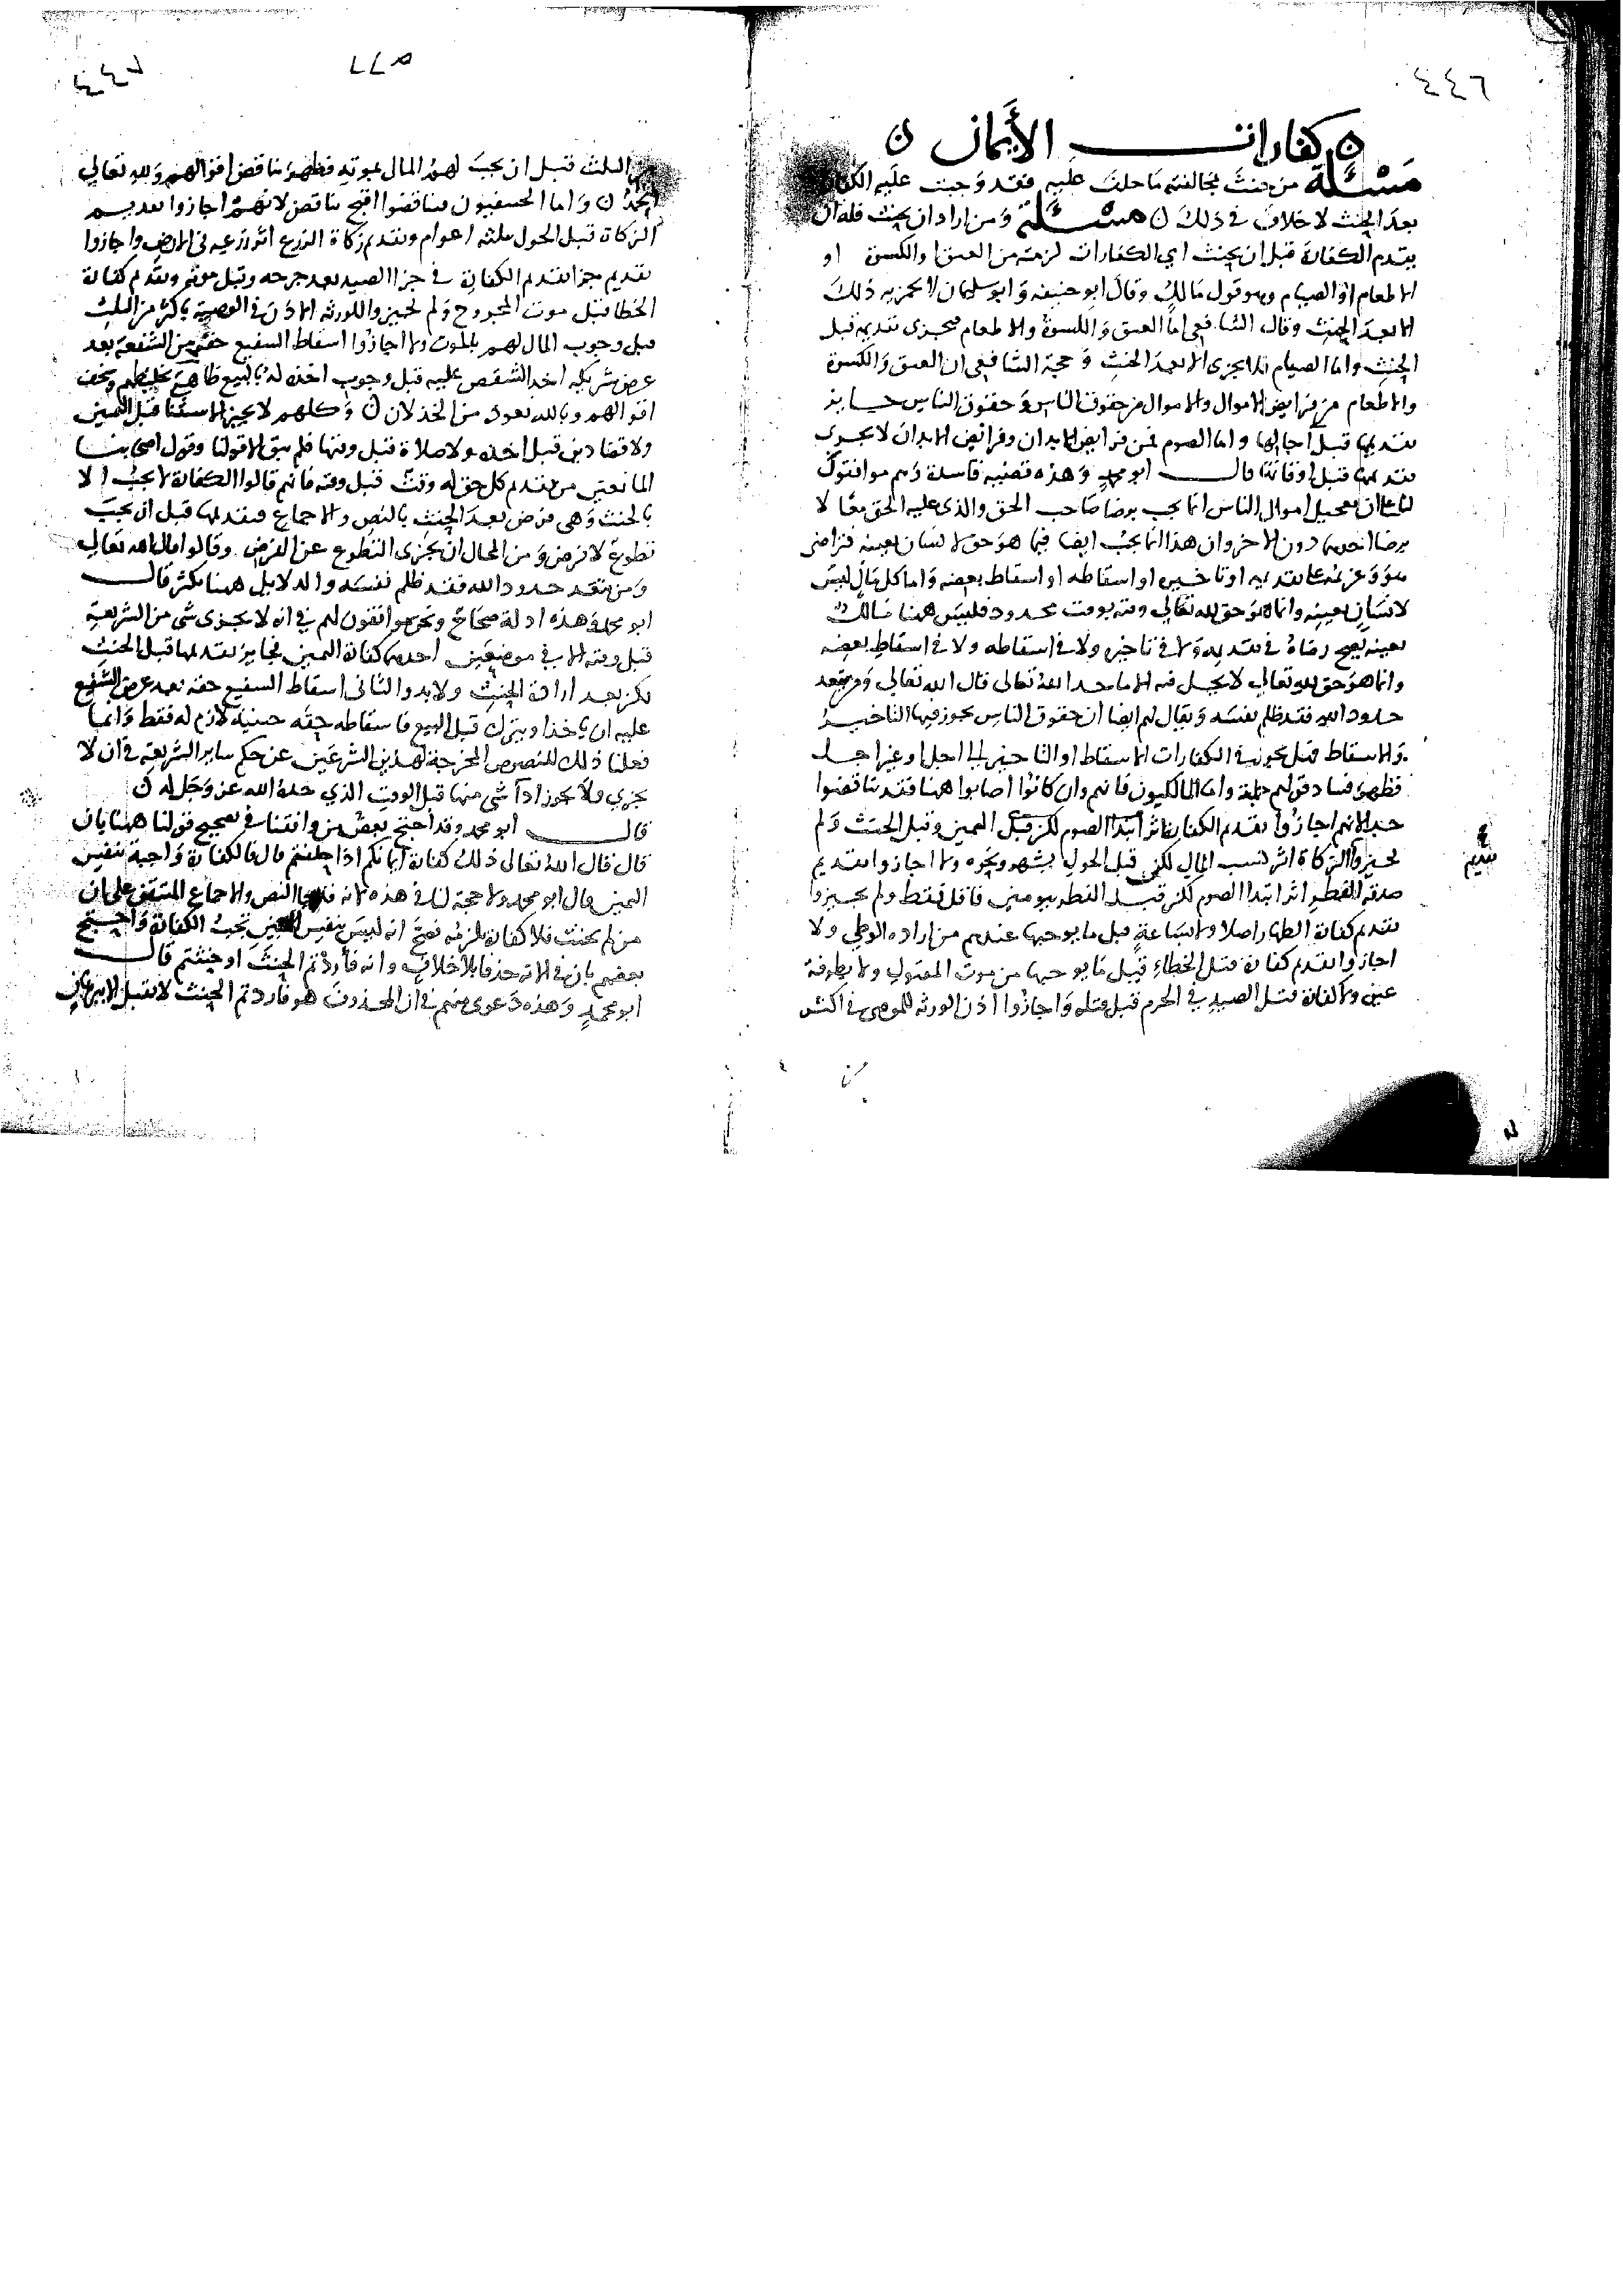 ٤٤٦
كفارات الأيمان ن
مسئلة من حنث بمخالفته ما حلف عليه فقد وجبت عليه الكفارة
بعد الحنث لا خلاف في ذلك ن مسئلة ومن اراد ان يحنث فله ان
يقدم الكفارة قبل ان يحنث اي الكفارات لزمته من العتق او الكسوة او
الاطعام او الصيام وهو قول مالك وقال ابو حنيفه وابو سليمان لا يجزيه ذلك
الا بعد الحنث وقال الشافعي اما العتق والكسوة والاطعام فيجزى تقديمه قبل
الحنث واما الصيام فلا يجزى الا بعد الحنث وحجة الشافعي ان العتق والكسوة
والاطعام من فرايض الاموال والاموال من حقوق الناس وحقوق الناس جايز
تقديمها قبل آجالها واما الصوم فمن فرايض الابدان وفرائض الابدان لا يجزى
تقديمها قبل اوقاتها قال ابو محمد وهذه قضيه فاسدة وهم موافقون
لنا على ان تعجيل اموال الناس انما يجب برضا صاحب الحق والذى عليه الحق معا لا
برضا احدهما دون الاخر وان هذا انما يجب ايضا فيما هو حق لانسان بعينه فتراضى
هو وغريمه على تقديمه او تاخيره او اسقاطه او اسقاط بعضه واما كل مال ليس
لانسان بعينه وانما هو حق لله تعالى وقته بوقت محدود فليس ههنا مالك
بعينه يصح رضاه في تقديمه ولا في تاخيره ولا في اسقاطه ولا في اسقاط بعضه
وانما هو حق لله تعالى لا يحل فيه الا ما حده الله تعالى قال الله تعالى ومن يتعد
حدود الله فقد ظلم نفسه ويقال لهم ايضا ان حقوق الناس يجوز فيها التاخير
والاسقاط فهل يجوز في الكفارات الاسقاط او التاخير الى اجل او غير اجل
فظهر فساد قولهم جملة واما المالكيون فانهم وان كانوا اصابوا ههنا فقد تناقضوا
جدا لانهم اجازوا تقديم الكفارة اثر ابتدا الصوم لكن قبل اليمين وقبل الحنث ولم
يجيزوا الزكاة اثر كسب المال لكن قبل الحول بشهر ونحوه ولا اجازوا تقديم
صدقة الفطر اثر ابتدا الصوم لكن قبل الفطر بيومين فاقل فقط ولم يجيزوا
تقديم كفارة الظهار اصلا ولا بساعة قبل ما يوجبها عندهم من اراده الوطي ولا
اجازوا تقديم كفارة قتل الخطاء قبل ما يوجبها من موت المقتول ولا بطرفة
عين ولا كفارة قتل الصيد في الحرم قبل قتله واجازوا اذن الورثه للموصى في اكثر
٤٤٧
٢٢٥
من الثلث قبل ان يجب لهم المال بموته فظهر تناقض اقوالهم ولله تعالى
الحمد ن واما الحنفيون فتناقضوا اقبح تناقض لانهم اجازوا تقديم
الزكاة قبل الحول بثلثه اعوام وتقديم زكاة الزرع اثر زرعه في الارض واجازوا
تقديم جزا الصيد بعد جرحه وقبل موته وتقديم كفارة
الخطا قبل موت المجروح ولم يجيزوا للورثه الاذن في الوصيه باكثر من الثلث
قبل وجوب المال لهم بالموت ولا اجازوا اسقاط الشفيع حقه من الشفعة بعد
عرض شريكه اخذ الشقص عليه قبل وجوب اخذه له بالبيع فظاهر تخليطهم وسخف
اقوالهم وبالله نعوذ من الخذلان ن وكلهم لا يجيز الاستثنا قبل اليمين
ولا قضا دين قبل اخذه ولا صلاة قبل وقتها فلم يبق الا قولنا وقول اصحابنا
المانعين من تقديم كل حق له وقت قبل وقته فانهم قالوا الكفارة لا تجب الا
بالحنث وهي فرض بعد الحنث بالنص والاجماع فتقديمها قبل ان تجب
تطوع لا فرض ومن المحال ان يجزى التطوع عن الفرض وقالوا قال الله تعالى
ومن يتعد حدود الله فقد ظلم نفسه والدلايل ههنا تكثر قال
ابو محمد وهذه ادلة صحاح ونحن موافقون لهم في انه لا يجزى شى من الشريعه
قبل وقته الا في موضعين احدهما كفارة اليمين فجايز تقديمها قبل الحنث
لكن بعد ارادة الحنث ولا بد والثاني اسقاط الشفيع حقه بعد عرض الشفيع
عليه ان ياخذ او يترك قبل البيع فاسقاطه حقه حينيذ لازم له فقط وانما
فعلنا ذلك للنصوص المخرجة لهذين الشرعين عن حكم ساير الشريعه في ان لا
يجزي ولا يجوز ادآ شى منها قبل الوقت الذي حده الله عز وجل له ن
قال ابو محمد وقد احتج بعض من وافقنا في تصحيح قولنا ههنا بان
قال قال الله تعالى ذلك كفارة ايمانكم اذا حلفتم قال فالكفارة واجبة بنفس
اليمين قال ابو محمد ولا حجة لنا في هذه لانه قد جا النص والاجماع المتيقن على ان
من لم يحنث فلا كفارة تلزمه فصح انه ليس بنفس اليمين تجب الكفارة واحتج
بعضهم بان في الاية حذفا بلا خلاف وانه فأردتم الحنث او حنثتم قال
ابو محمد وهذه دعوى منهم في ان المحذوف هو فاردتم الحنث لا تقبل الا ببرهان